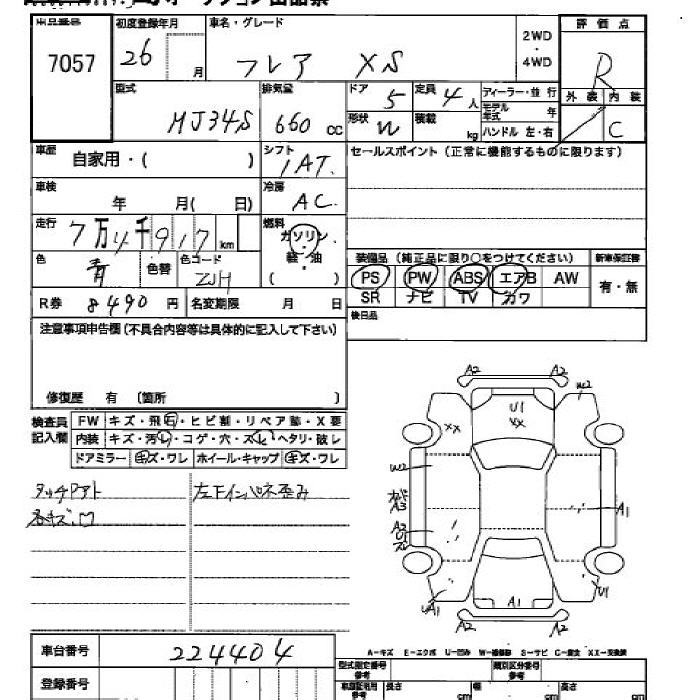 7057
初度登録年月
26 月
車名・グレード
フレア XS
2WD
・
4WD
評価点
R
外装 内装
C
型式
MJ34S
排気量
660 cc
ドア
5
定員
4 人
形状
W
積載
kg
ディーラー・並行
モデル年式 年
ハンドル 左・右
車歴
自家用・( )
シフト
IAT.
セールスポイント(正常に機能するものに限ります)
車検
年 月( 日)
冷房
AC
走行
7万4千917km
燃料
ガソリン
・
軽・油
( )
色
青
色替
色コード
ZJH
装備品(純正品に限り○をつけてください)
新車保証書
PS PW ABS エアB AW
有・無
SR ナビ TV カワ
R券 8490円
名変期限 月 日
後日品
注意事項申告欄(不具合内容等は具体的に記入して下さい)
修復歴 有 〔箇所 〕
検査員
記入欄
FW キズ・飛石・ヒビ割・リペア跡・X要
内装 キズ・汚し・コゲ・穴・スレ・ヘタリ・破レ
ドアミラー キズ・ワレ ホイール・キャップ キズ・ワレ
タッチアト
左下インパネ歪み
各キズ.凹
A2 A2
W2
U1
XX
XX
W2
A3
A1
A2
A1
UA1
U1
A2 A2
車台番号
224404
登録番号
A-キズ E-エクボ U-凹み W-補修跡 S-サビ C-腐食 XX-交換済
型式指定番号
参考
類別区分番号
参考
長さ cm
幅 cm
高さ cm